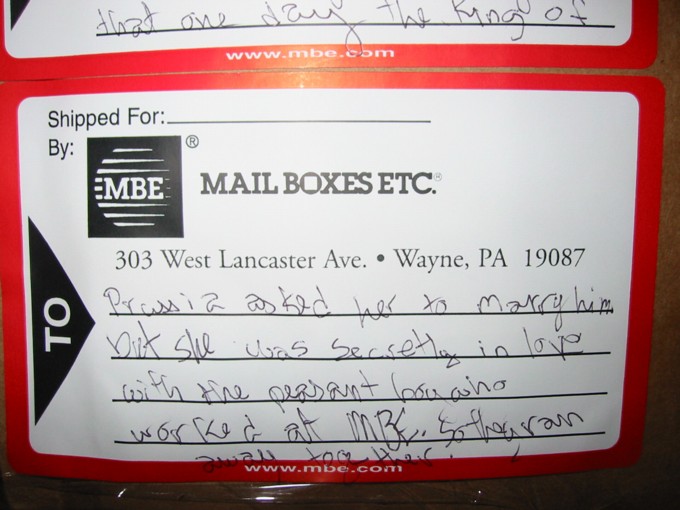 that one day the King of
www.mbe.com
Shipped For:
By:
MBE ®
MAIL BOXES ETC.®
303 West Lancaster Ave. • Wayne, PA 19087
TO
Prussia asked her to marry him
but she was secretly in love
with the peasant boy who
worked at MBE. So they ran
away together.
www.mbe.com